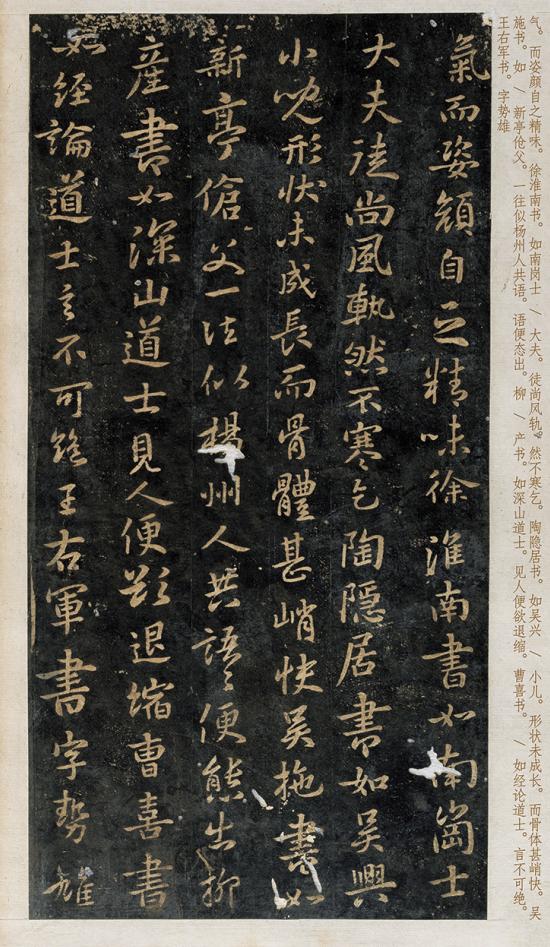 氣而姿顏自之精味徐淮南書如南崗士
大夫徒尚風軌然不寒乞陶隱居書如吳興
小兒形状未成長而骨體甚峭快吳施書如
新亭傖父一往似楊州人共語々便態出柳
產書如深山道士見人便欲退縮曹喜書
如經論道士言不可絶王右軍書字勢雄
气。而姿颜自之精味。徐淮南书。如南岗士 / 大夫。徒尚风轨。然不寒乞。陶隐居书。如吴兴 / 小儿。形状未成长。而骨体甚峭快。吴
施书。如 / 新亭伧父。一往似杨州人共语。语便态出。 柳 / 产书。如深山道士。见人便欲退缩。曹喜书。 / 如经论道士。言不可绝。
王右军书。字势雄